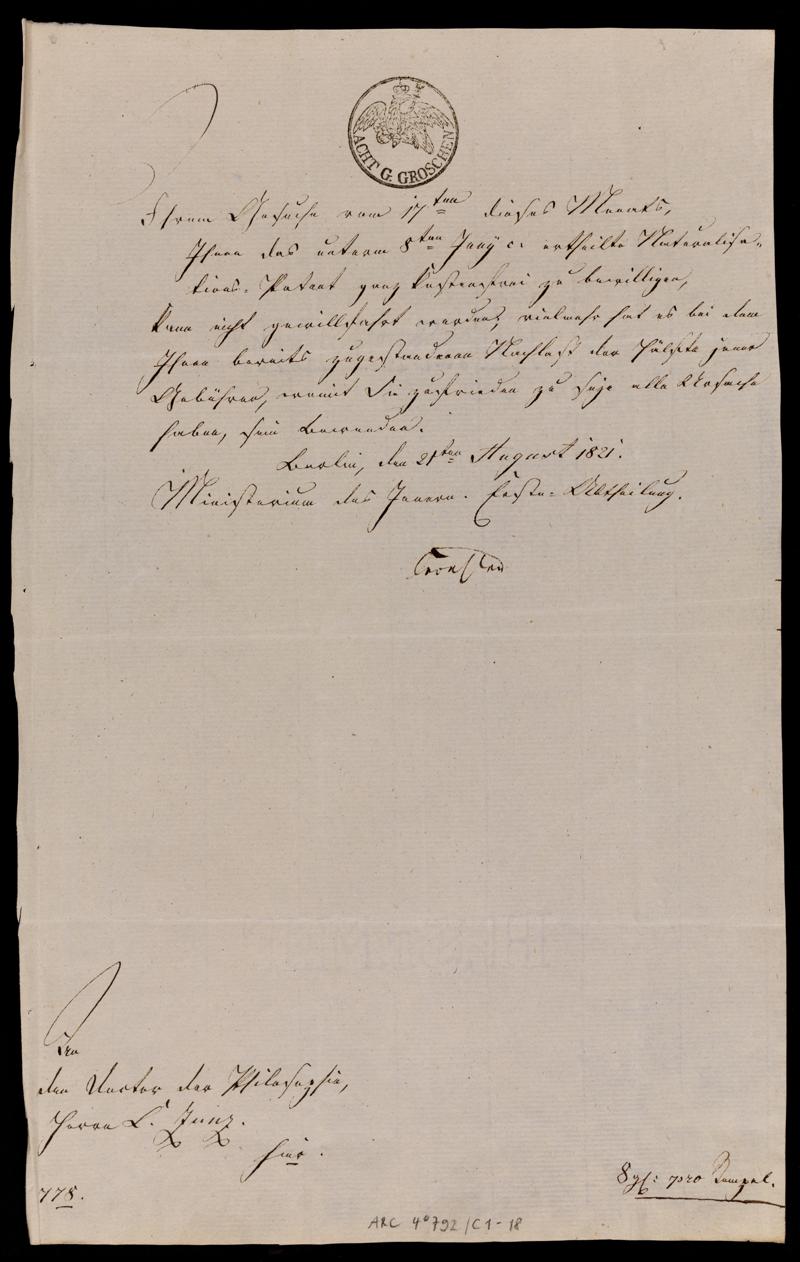 ACHT G. GROSCHEN
Ihrem Gesuche vom 17ten dieses Monats,
Ihnen das unterm 8ten Juny c. ertheilte Naturalisa-
tions-Patent ganz kostenfrei zu bewilligen,
kann nicht gewillfahrt werden, vielmehr hat es bei dem
Ihnen bereits zugestandenen Nachlaß der Hälfte jener
Gebühren, womit Sie zufrieden zu seyn alle Ursache
haben, sein Bewenden.
Berlin, den 21ten August 1821.
Ministerium des Innern. Erste Abtheilung.
An
den Doctor der Philosophie,
Herrn L. Zunz.
hier.
778.
8 gl: pro Stempel.
ARC 4° 792/C1-18